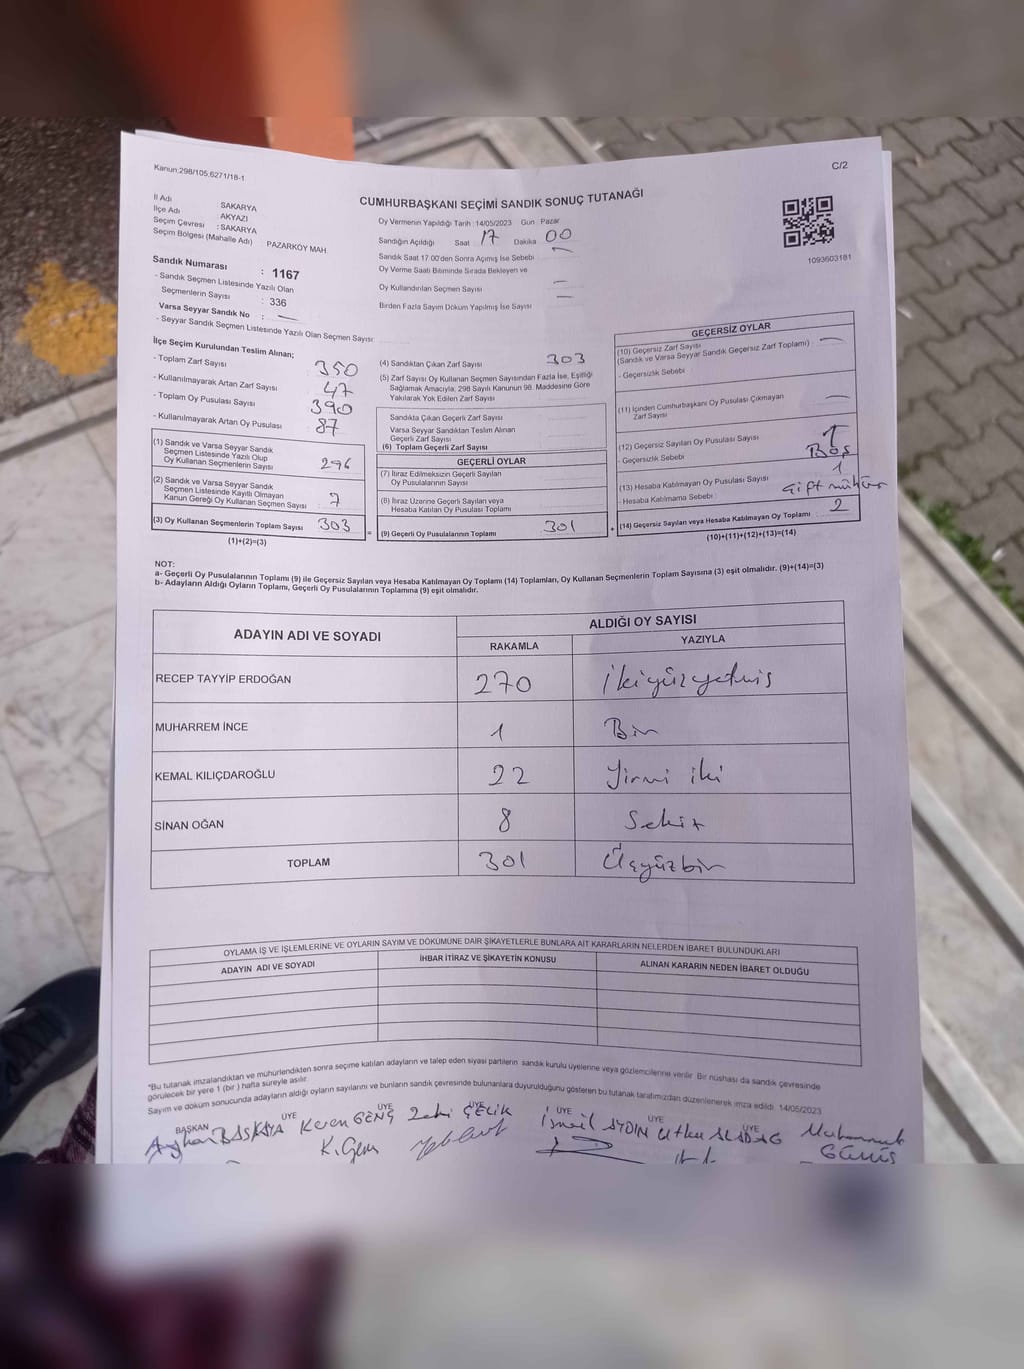 Kanun:298/105,6271/18-1
C/2
CUMHURBAŞKANI SEÇİMİ SANDIK SONUÇ TUTANAĞI
İl Adı : SAKARYA
İlçe Adı : AKYAZI
Seçim Çevresi : SAKARYA
Seçim Bölgesi (Mahalle Adı) : PAZARKÖY MAH.
Sandık Numarası : 1167
- Sandık Seçmen Listesinde Yazılı Olan
Seçmenlerin Sayısı : 336
Varsa Seyyar Sandık No : —
- Seyyar Sandık Seçmen Listesinde Yazılı Olan Seçmen Sayısı:
Oy Vermenin Yapıldığı Tarih :14/05/2023 Gün : Pazar
Sandığın Açıldığı Saat 17 Dakika 00
Sandık Saat 17:00'den Sonra Açımış İse Sebebi —
Oy Verme Saati Bitiminde Sırada Bekleyen ve
Oy Kullandırılan Seçmen Sayısı —
Birden Fazla Sayım Döküm Yapılmış İse Sayısı —
1093603181
İlçe Seçim Kurulundan Teslim Alınan;
- Toplam Zarf Sayısı 350
- Kullanılmayarak Artan Zarf Sayısı 47
- Toplam Oy Pusulası Sayısı 390
- Kullanılmayarak Artan Oy Pusulası 87
(1) Sandık ve Varsa Seyyar Sandık
Seçmen Listesinde Yazılı Olup
Oy Kullanan Seçmenlerin Sayısı 296
(2) Sandık ve Varsa Seyyar Sandık
Seçmen Listesinde Kayıtlı Olmayan
Kanun Gereği Oy Kullanan Seçmen Sayısı 7
(3) Oy Kullanan Seçmenlerin Toplam Sayısı 303
(1)+(2)=(3)
(4) Sandıktan Çıkan Zarf Sayısı 303
(5) Zarf Sayısı Oy Kullanan Seçmen Sayısından Fazla İse, Eşitliği
Sağlamak Amacıyla, 298 Sayılı Kanunun 98. Maddesine Göre
Yakılarak Yok Edilen Zarf Sayısı
Sandıkta Çıkan Geçerli Zarf Sayısı
Varsa Seyyar Sandıktan Teslim Alınan
Geçerli Zarf Sayısı
(6) Toplam Geçerli Zarf Sayısı
GEÇERLİ OYLAR
(7) İtiraz Edilmeksizin Geçerli Sayılan
Oy Pusulasının Sayısı
(8) İtiraz Üzerine Geçerli Sayılan veya
Hesaba Katılan Oy Pusulası Toplamı
= (9) Geçerli Oy Pusulalarının Toplamı 301 +
GEÇERSİZ OYLAR
(10) Geçersiz Zarf Sayısı
(Sandık ve Varsa Seyyar Sandık Geçersiz Zarf Toplamı) : —
- Geçersizlik Sebebi :
(11) İçinden Cumhurbaşkanı Oy Pusulası Çıkmayan
Zarf Sayısı —
(12) Geçersiz Sayılan Oy Pusulası Sayısı 1
- Geçersizlik Sebebi : Boş
(13) Hesaba Katılmayan Oy Pusulası Sayısı 1
- Hesaba Katılmama Sebebi : Çift mühür
(14) Geçersiz Sayılan veya Hesaba Katılmayan Oy Toplamı 2
(10)+(11)+(12)+(13)=(14)
NOT:
a- Geçerli Oy Pusulalarının Toplamı (9) ile Geçersiz Sayılan veya Hesaba Katılmayan Oy Toplamı (14) Toplamları, Oy Kullanan Seçmenlerin Toplam Sayısına (3) eşit olmalıdır. (9)+(14)=(3)
b- Adayların Aldığı Oyların Toplamı, Geçerli Oy Pusulalarının Toplamına (9) eşit olmalıdır.
ADAYIN ADI VE SOYADI
ALDIĞI OY SAYISI
RAKAMLA YAZIYLA
RECEP TAYYİP ERDOĞAN 270 ikiyüzyetmiş
MUHARREM İNCE 1 Bir
KEMAL KILIÇDAROĞLU 22 Yirmi iki
SİNAN OĞAN 8 Sekiz
TOPLAM 301 Üçyüzbir
OYLAMA İŞ VE İŞLEMLERİNE VE OYLARIN SAYIM VE DÖKÜMÜNE DAİR ŞİKAYETLERLE BUNLARA AİT KARARLARIN NELERDEN İBARET BULUNDUKLARI
ADAYIN ADI VE SOYADI İHBAR İTİRAZ VE ŞİKAYETİN KONUSU ALINAN KARARIN NEDEN İBARET OLDUĞU
*Bu tutanak imzalandıktan ve mühürlendikten sonra seçime katılan adayların ve talep eden siyasi partilerin sandık kurulu üyelerine veya gözlemcilerine verilir. Bir nüshası da sandık çevresinde
görülecek bir yere 1 (bir) hafta süreyle asılır.
Sayım ve döküm sonucunda adayların aldığı oyların sayılarını ve bunların sandık çevresinde bulunanlara duyurulduğunu gösteren bu tutanak tarafımızdan düzenlenerek imza edildi. 14/05/2023
BAŞKAN ÜYE ÜYE ÜYE ÜYE ÜYE
Ayhan BAŞKAYA Keren GENÇ Zeki ÇELİK İsmail AYDIN Utku ALADAĞ Muhammet
GÜMÜŞ
K.Genç